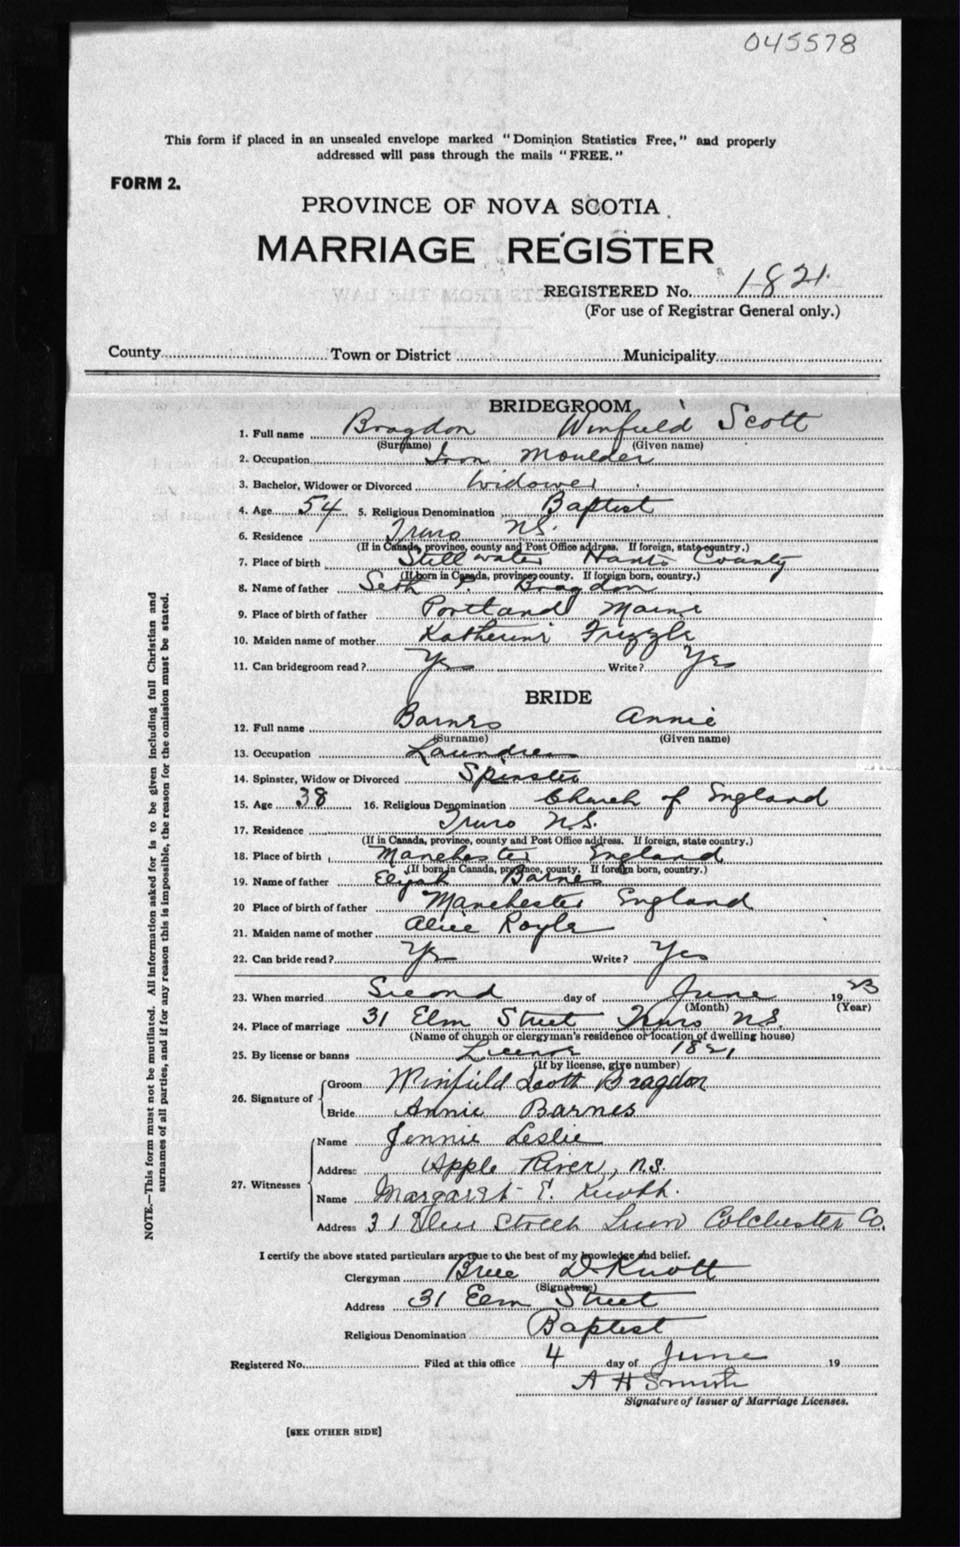 045578
This form if placed in an unsealed envelope marked "Dominion Statistics Free," and properly
addressed will pass through the mails "FREE."
FORM 2.
PROVINCE OF NOVA SCOTIA
MARRIAGE REGISTER
REGISTERED No. 1821
(For use of Registrar General only.)
County Town or District Municipality
BRIDEGROOM
1. Full name Bragdon Winfield Scott
(Surname) (Given name)
2. Occupation Iron Moulder
3. Bachelor, Widower or Divorced Widower
4. Age 54 5. Religious Denomination Baptist
6. Residence Truro N.S.
(If in Canada, province, county and Post Office address. If foreign, state country.)
7. Place of birth Still water Hants County
(If born in Canada, province, county. If foreign born, country.)
8. Name of father Seth P. Bragdon
9. Place of birth of father Portland Maine
10. Maiden name of mother Katherine Frizzle
11. Can bridegroom read? Yes Write? Yes
BRIDE
12. Full name Barnes Annie
(Surname) (Given name)
13. Occupation Laundress
14. Spinster, Widow or Divorced Spinster
15. Age 38 16. Religious Denomination Church of England
17. Residence Truro N.S.
(If in Canada, province, county and Post Office address. If foreign, state country.)
18. Place of birth Manchester England
(If born in Canada, province, county. If foreign born, country.)
19. Name of father Elijah Barnes
20 Place of birth of father Manchester England
21. Maiden name of mother Alice Royle
22. Can bride read? Yes Write? Yes
23. When married Second day of June 1923
(Month) (Year)
24. Place of marriage 31 Elm Street Truro N.S.
(Name of church or clergyman's residence or location of dwelling house)
25. By license or banns License 1821
(If by license, give number)
26. Signature of
Groom Winfield Scott Bragdon
Bride Annie Barnes
27. Witnesses
Name Jennie Leslie
Address Apple River, N.S.
Name Margaret E. Knott.
Address 31 Elm Street Truro Colchester Co.
I certify the above stated particulars are true to the best of my knowledge and belief.
Clergyman D. Knott
(Signature)
Address 31 Elm Street
Religious Denomination Baptist
Registered No. Filed at this office 4 day of June 19
A H Smith
Signature of Issuer of Marriage Licenses.
[SEE OTHER SIDE]
NOTE.—This form must not be mutilated. All information asked for is to be given including full Christian and
surnames of all parties, and if for any reason this is impossible, the reason for the omission must be stated.